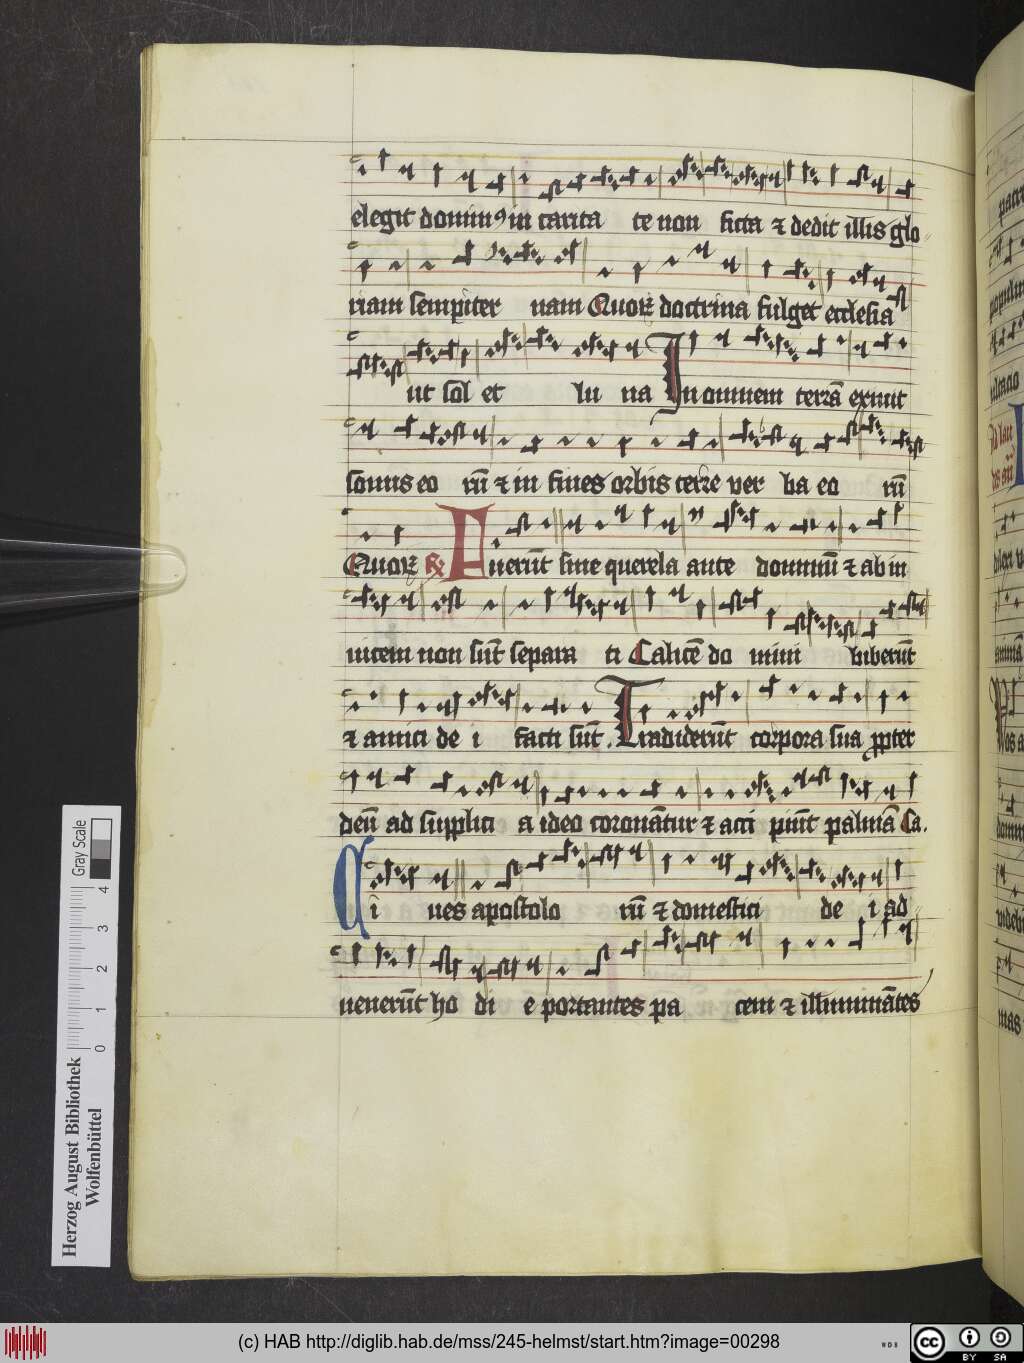 elegit dominꝰ in carita te non ficta ⁊ dedit illis glo
riam sempiter nam Quoꝝ doctrina fulget ecclesia
ut sol et lu na In omnem terrā exiuit
sonus eo rū ⁊ in fines orbis terre ver ba eo rū
Quoꝝ ℟ Fuerūt sine querela ante dominū ⁊ ab in
uicem non sūt separa ti Calicē do mini biberūt
⁊ amici de i facti sūt. Tradiderūt corpora sua ꝓpter
deū ad supplici a ideo coronātur ⁊ acci piūt palmā Ca.
Ci ues apostolo rū ⁊ domestici de i ad
uenerūt ho di e portantes pa cem ⁊ illuminātes
Gray Scale
0 1 2 3 4
Herzog August Bibliothek
Wolfenbüttel
(c) HAB http://diglib.hab.de/mss/245-helmst/start.htm?image=00298
WDB
cc BY SA